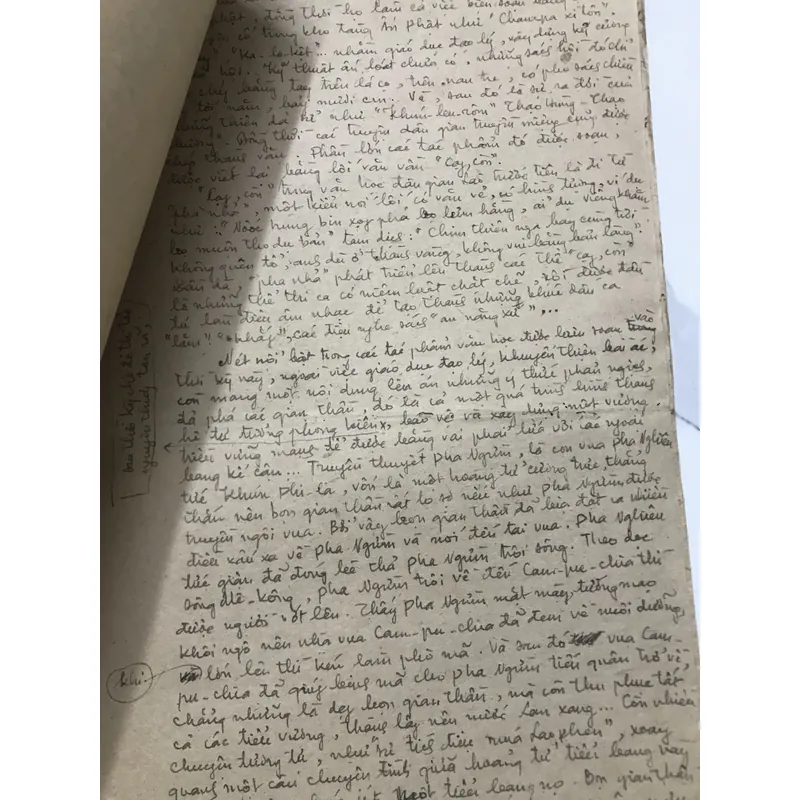 nhật, đồng thời họ làm cả việc biên soạn
trong kho tàng Ấn Phật như "Chămpa xỉ tôn"
"Ka-lo-kêt"... nhằm giáo dục đạo lý, xây dựng kỷ cương
xã hội. Kỹ thuật ấn loát chưa có, những sách hồi đó chỉ
bằng tay trên lá cọ, trên nan tre, có pho sách chiếm
tới năm, bảy mươi cm. Và, sau đó là sự ra đời của
những thiên sử như "Khún-bu-rôm" "Thạo hùng - Thạo
chương". Đồng thời các truyện dân gian truyền miệng cũng được
chép thành văn. Phần lớn các tác phẩm đó được soạn,
được viết lại bằng lối văn vần "Cạy, còn".
"Cạy, còn" trong văn học dân gian Lào trước tiên là đi từ
"pha nhả", một kiểu nói lối có văn vẻ, có hình tượng, ví dụ
như: "Nôốc hung bin xọy pha bo lưm hằng, ai du viêng khằm
bo muôn tho du bản" tạm dịch: "Chim thiên nga bay cùng trời
không quên tổ, anh dù ở thành vàng, không vui bằng bản làng".
Dần dà, "pha nhả" phát triển lên thành các thể "cạy, còn"
là những thể thi ca có niêm luật chặt chẽ, rồi được dần
từ làm điệu âm nhạc để tạo thành những khúc dân ca
"lăm" "khắp", các điệu nghe sách "an nằng xử"...
Nét nổi bật trong các tác phẩm văn học được biên soạn vào
thời kỳ này, ngoài việc giáo dục đạo lý, khuyến thiện bài ác,
còn mang một nội dung lên án những ý thức phản nghịch,
đả phá các gian thần, đó là cả một quá trình hình thành
hệ tư tưởng phong kiến, bảo vệ và xây dựng một vương
triều vững mạnh để được bằng vai phải lứa với các nước
bang kế cận... Truyền thuyết Pha Ngừm, là con vua Pha Nghiêu
tức Khún Phi-lạ, vốn là một hoàng tử cương trực thẳng
thắn nên bọn gian thần rất lo sợ nếu như Pha Ngừm được
truyền ngôi vua. Bởi vậy bọn gian thần đã bịa đặt ra nhiều
điều xấu xa về Pha Ngừm và nói đến tai vua. Pha Nghiêu
tức giận đã đóng bè thả Pha Ngừm trôi sông. Theo dọc
sông Mê-kông, Pha Ngừm trôi về đến Cam-pu-chia thì
được người vớt lên. Thấy Pha Ngừm mặt mày, tướng mạo
khôi ngô nên nhà vua Cam-pu-chia đã đem về nuôi dưỡng,
khi lớn lên thì kén làm phò mã. Và sau đó vua Cam-
pu-chia đã giúp binh mã cho Pha Ngừm tiến quân trở về,
chẳng những là dẹp bọn gian thần, mà còn thu phục tất
cả các tiểu vương, thành lập nên nước Lan xang... Còn nhiều
chuyện tương tự, như "sự tích điệu múa Lạp phôn", xoay
quanh một câu chuyện tình giữa hoàng tử tiểu bang này
một tiểu bang nọ. Bọn gian thần